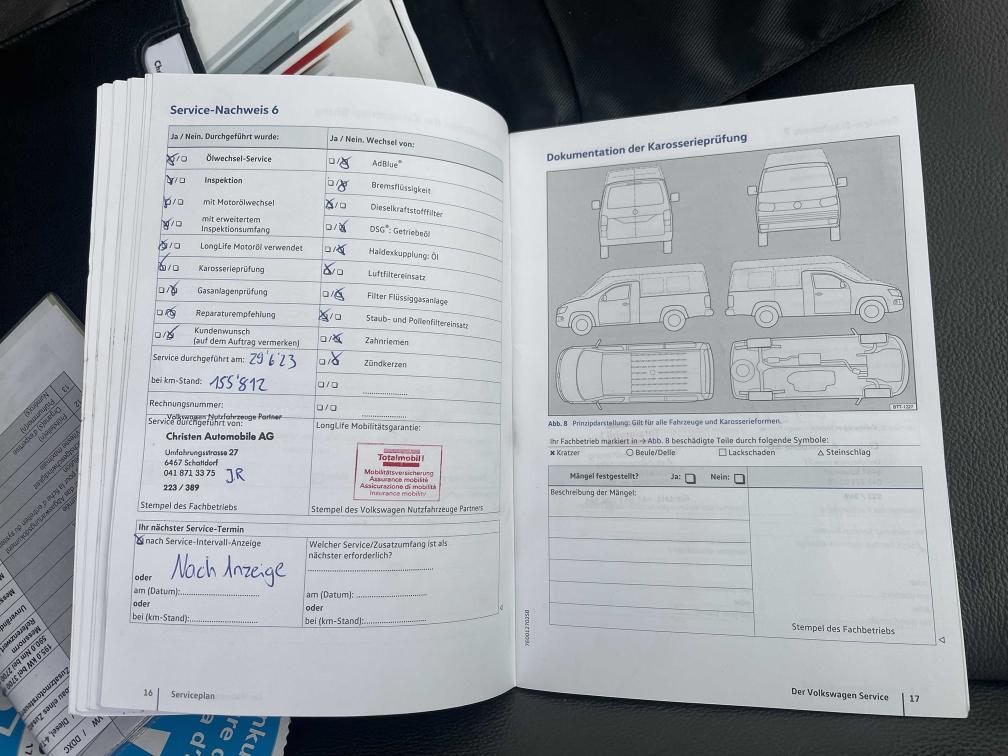 Service-Nachweis 6
Ja / Nein. Durchgeführt wurde:
Ölwechsel-Service
Inspektion
mit Motorölwechsel
mit erweitertem
Inspektionsumfang
LongLife Motoröl verwendet
Karosserieprüfung
Gasanlagenprüfung
Reparaturempfehlung
Kundenwunsch
(auf dem Auftrag vermerken)
Service durchgeführt am: 29'6'23
bei km-Stand: 155'812
Rechnungsnummer:
Volkswagen Nutzfahrzeuge Partner
Service durchgeführt von:
Christen Automobile AG
Umfahrungsstrasse 27
6467 Schattdorf
041 871 33 75
J.R
223 / 389
Stempel des Fachbetriebs
Ja / Nein. Wechsel von:
AdBlue®
Bremsflüssigkeit
Dieselkraftstofffilter
DSG®: Getriebeöl
Haldexkupplung: Öl
Luftfiltereinsatz
Filter Flüssiggasanlage
Staub- und Pollenfiltereinsatz
Zahnriemen
Zündkerzen
LongLife Mobilitätsgarantie:
Totalmobil!
Mobilitätsversicherung
Assurance mobilité
Assicurazione di mobilità
Insurance mobility
Stempel des Volkswagen Nutzfahrzeuge Partners
Ihr nächster Service-Termin
nach Service-Intervall-Anzeige
Nach Anzeige
oder
am (Datum):
oder
bei (km-Stand):
Welcher Service/Zusatzumfang ist als
nächster erforderlich?
am (Datum):
oder
bei (km-Stand):
16 Serviceplan
Dokumentation der Karosserieprüfung
BTT-1227
Abb. 8 Prinzipdarstellung: Gilt für alle Fahrzeuge und Karosserieformen.
Ihr Fachbetrieb markiert in → Abb. 8 beschädigte Teile durch folgende Symbole:
× Kratzer ○ Beule/Delle □ Lackschaden △ Steinschlag
Mängel festgestellt? Ja: Nein:
Beschreibung der Mängel:
Stempel des Fachbetriebs
Der Volkswagen Service 17